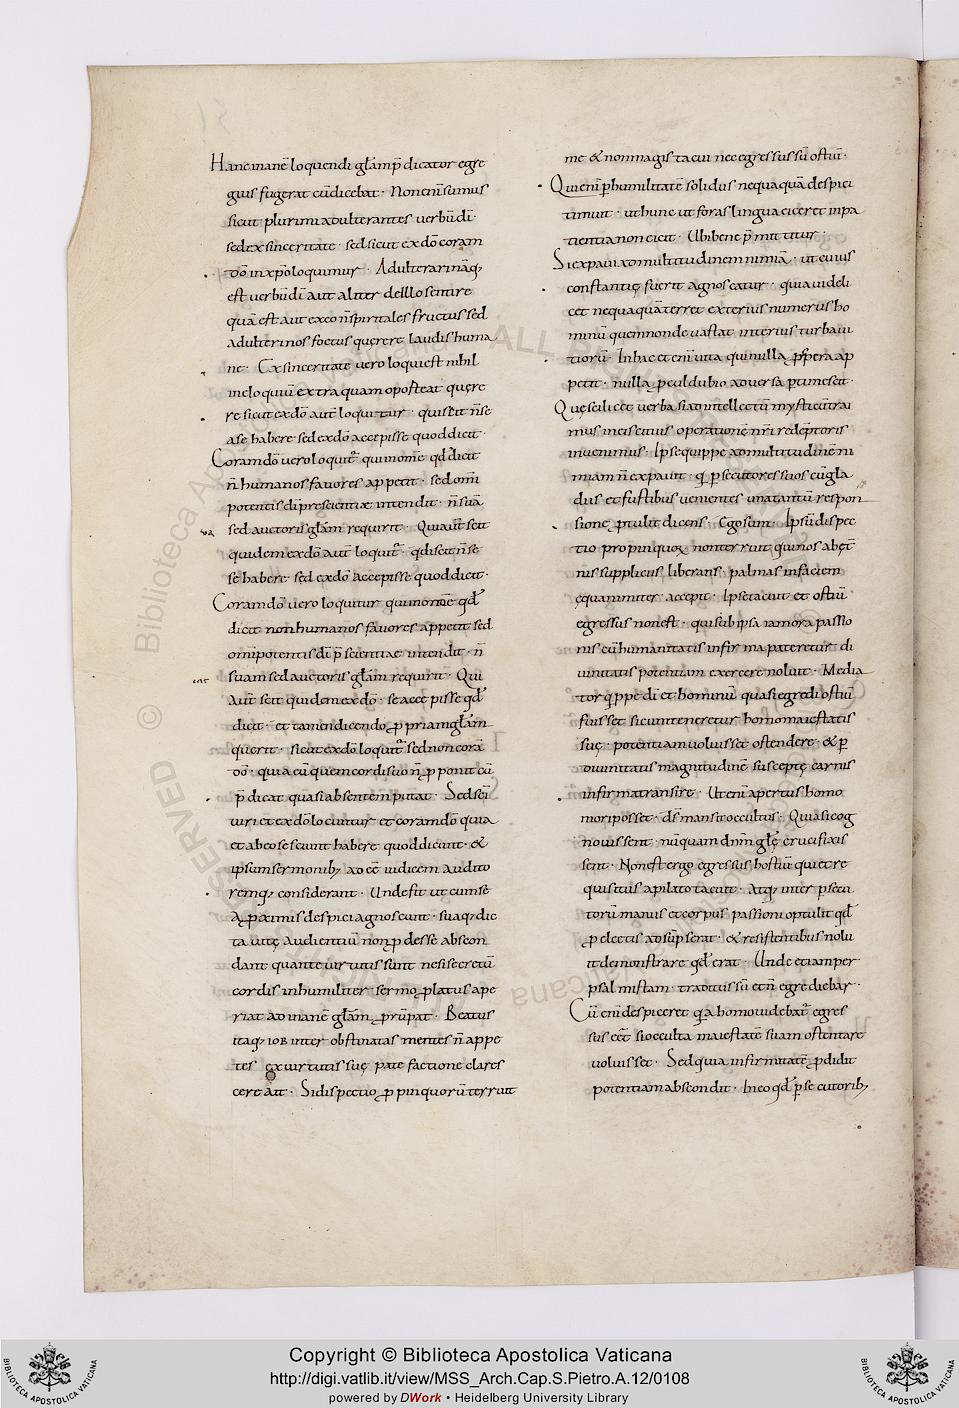 Hanc inanē loquendi gl̄am p̄dicator egre
gius fugerat cū dicebat · Non enī sumus
sicut plurimi adulterantes uerbū dī ·
sed ex sinceritate · sed sicut ex dō coram
dō in xp̄o loquimur · Adulterari nāq;
est uerbū dī aut aliter de illo sentire
quā est aut ex eo n̄ spiritales fructus sed
adulterinos foetus quęrere laudis huma
nę · Ex sinceritate uero loqui est nihil
in eloquiū extra quam oporteat quęre
re sicut ex dō autē loquitur · qui scit n̄ se
a se habere sed ex dō accepisse quod dicit ·
Coram dō uero loquit̄ qui nomē qd̄ dicit
n̄ humanos fauores appetit · sed om̄i
potentis dī presentiae intendit · n̄ suā
sed auctoris gl̄am requirit · Qui aut̄ scit
quidem ex dō aut̄ loquit̄ · qd scit n̄ se
se habere · sed ex dō accepisse quod dicit ·
Coram dō uero loquitur qui nomē qd̄
dicit non humanos fauores appetit sed
om̄ipotentis dī p̄scientiae intendit · n̄
suam sed auctoris gl̄am requirit · Qui
aut̄ scit quidem ex dō · se accepisse qd̄
dicit · et tamen dicendo ꝓpriam gl̄am
querit · sicut ex dō loquit̄ sed non corā
dō · quia cū quem cordi suo n̄ ꝓponit cū
p̄dicat quasi absentem putat · Sed scī
uiri et ex dō locuntur et coram dō quia
et ab eo se sciunt habere quod dicunt · &
ipsum sermonib; ad eē iudicem audito
remq; considerant · Unde fit ut cum se
a ꝓximis despici agnoscunt · suaq; dic
ta uitę audientiū non ꝓdesse abscon
dant quantę uirtutis sunt ne si secretū
cordis inhumiliter sermo ꝓlatus ape
riat ad inanē gl̄am ꝓrūpat · Beatus
itaq; iob inter obstinatas mentes n̄ appe
tes ex uirtutis suę patefactione clares
cere ait · Si dispectio ꝓpinquorū terruit
me & non magis tacui nec egressus sū ostiū ·
Qui enī p humilitatē solidus nequaquā despici
timuit · ut hunc ut foras lingua eiceret inpa
tientia non eicit · Ubi bene p̄mittitur ·
Si expaui ad multitudinem nimiā · ut cuius
constantię fuerit agnoscatur · quia uideli
cet nequaquā terret exterius numerus ho
minū quem non deuastat interius turba ui
tiorū · In hac et enī uita qui nulla ꝓspera ap
petit · nulla ꝓcul dubio aduersa ptimescit ·
Quę scilicet uerba si ad intellectū mysticū trai
mus incisciuius operationē nr̄i redēptoris
inuenimus · Ipse quippe ad multitudinē ni
miam n̄ expauit · q; psecutores suos cū gla
diis et fustibus uenientes una tantū respon
sione ꝓtulit dicens · Ego sum · Ipsū dispec
tio propinquoꝝ non terruit qui nos ab ęt̄
nis suppliciis liberans · palmas in faciem
ęquanimiter accepit · Ipse tacuit et ostiū
egressus non est · qui sub ipsa iam ora passio
nis cū humanitatis infirma pateretur di
uinitatis potentiam exercere noluit · Media
tor q;ppe dī et hominū quasi egredi ostiū
fuisset si cum teneretur homo maiestatis
suę · potentiam uoluisset ostendere · & p
diuinitatis magnitudinē susceptę carnis
infirma transire · Ut enī apertus homo
mori posset · ds̄ mansit occultus · Quia si cog
nouissent · nūquam dn̄m gl̄ę crucifixis
sent · Non est ergo egressus hostiū qui et re
quisitus a pilato tacuit · Atq; inter psecu
torū manus et corpus passioni optulit qd̄
ꝓ electis adsūpserat · & resistentibus nolu
it demonstrare qd̄ erat · Unde etiam per
psalmistam · traditus sū et n̄ egrediebar ·
Cū enī despiceret quia homo uidebat̄ egres
sus eēt si occultā maiestatē suam ostentare
uoluisset · Sed quia infirmitatē ꝓdidit
potentiam abscondit · In eo qd̄ psecutorib;
Copyright © Biblioteca Apostolica Vaticana
http://digi.vatlib.it/view/MSS_Arch.Cap.S.Pietro.A.12/0108
powered by DWork • Heidelberg University Library